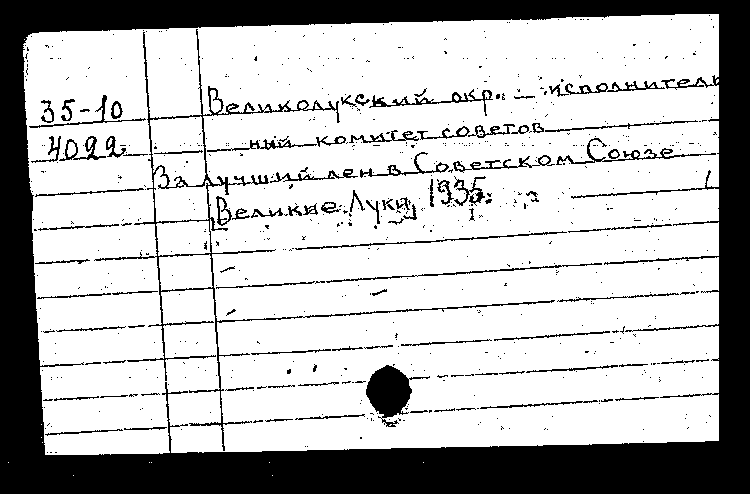 35-10 Великолукский окр. исполнитель
4022. ный комитет советов
За лучший лен в Советском Союзе
[Великие Луки] 1935.